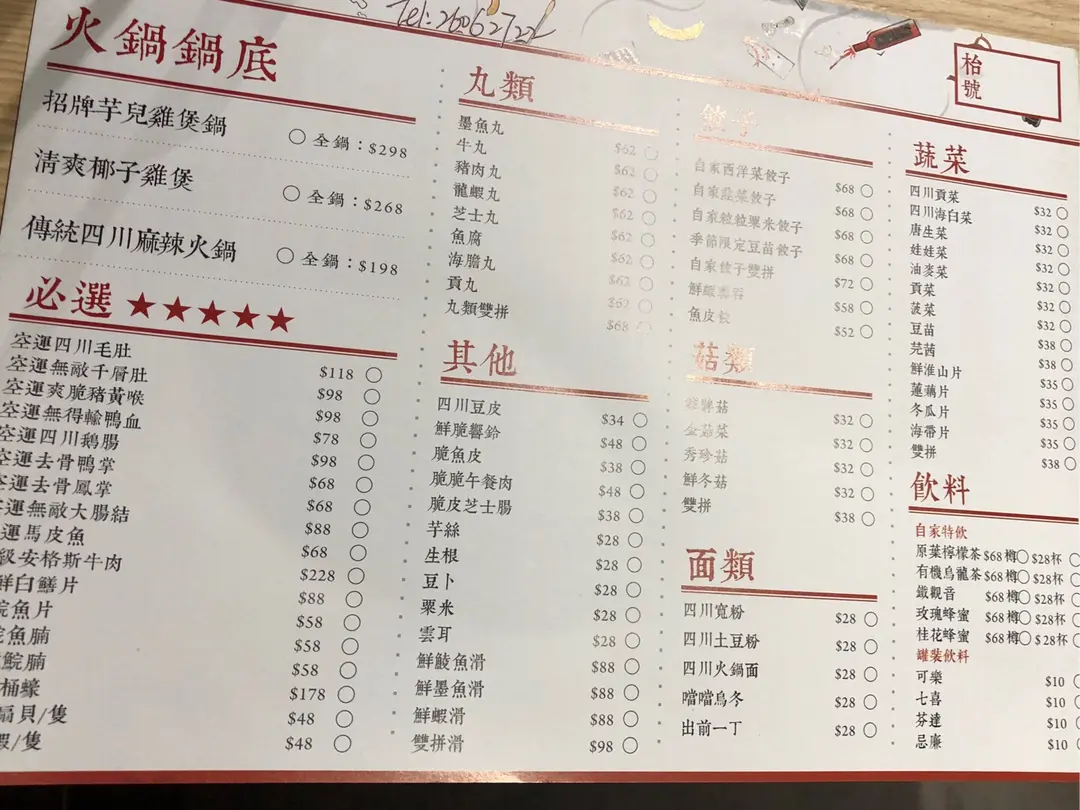 Tel: 26062722
枱號
火鍋鍋底
招牌芋兒雞煲鍋 全鍋：$298
清爽椰子雞煲 全鍋：$268
傳統四川麻辣火鍋 全鍋：$198
必選 ★★★★★
空運四川毛肚 $118
空運無敵千層肚 $98
空運爽脆豬黃喉 $98
空運無得輸鴨血 $78
空運四川鵝腸 $98
空運去骨鴨掌 $68
空運去骨鳳掌 $68
空運無敵大腸結 $88
運馬皮魚 $68
級安格斯牛肉 $228
鮮白鱔片 $88
鯇魚片 $58
魚腩 $58
鯇腩 $58
桶蠔 $178
扇貝/隻 $48
蝦/隻 $48
丸類
墨魚丸 $62
牛丸 $62
豬肉丸 $62
龍蝦丸 $62
芝士丸 $62
魚腐 $62
海膽丸 $62
貢丸 $62
丸類雙拼 $68
其他
四川豆皮 $34
鮮脆響鈴 $48
脆魚皮 $38
脆脆午餐肉 $48
脆皮芝士腸 $38
芋絲 $28
生根 $28
豆卜 $28
粟米 $28
雲耳 $28
鮮鯪魚滑 $88
鮮墨魚滑 $88
鮮蝦滑 $88
雙拼滑 $98
餃子
自家西洋菜餃子 $68
自家韮菜餃子 $68
自家粒粒粟米餃子 $68
季節限定豆苗餃子 $68
自家餃子雙拼 $72
鮮蝦雲吞 $58
魚皮餃 $52
菇類
菇 $32
金菇菜 $32
秀珍菇 $32
鮮冬菇 $32
雙拼 $38
面類
四川寬粉 $28
四川土豆粉 $28
四川火鍋面 $28
噹噹烏冬 $28
出前一丁 $28
蔬菜
四川貢菜 $32
四川海白菜 $32
唐生菜 $32
娃娃菜 $32
油麥菜 $32
貢菜 $32
菠菜 $32
豆苗 $38
芫茜 $38
鮮淮山片 $35
蓮藕片 $35
冬瓜片 $35
海帶片 $35
雙拼 $38
飲料
自家特飲
原葉檸檬茶 $68樽 $28杯
有機烏龍茶 $68樽 $28杯
鐵觀音 $68樽 $28杯
玫瑰蜂蜜 $68樽 $28杯
桂花蜂蜜 $68樽 $28杯
罐裝飲料
可樂 $10
七喜 $10
芬達 $10
忌廉 $10